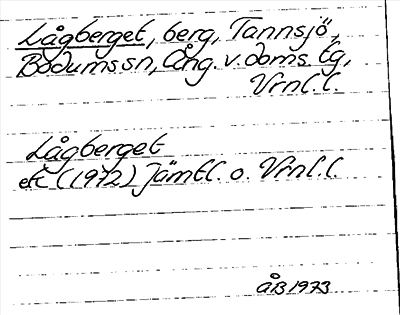 Lågberget, berg, Tannsjö,
Bodums sn, Ång. v. doms. tg,
Vrnl. l.
Lågberget
ek (1972) Jämtl. o. Vrnl. l.
ÅB 1973